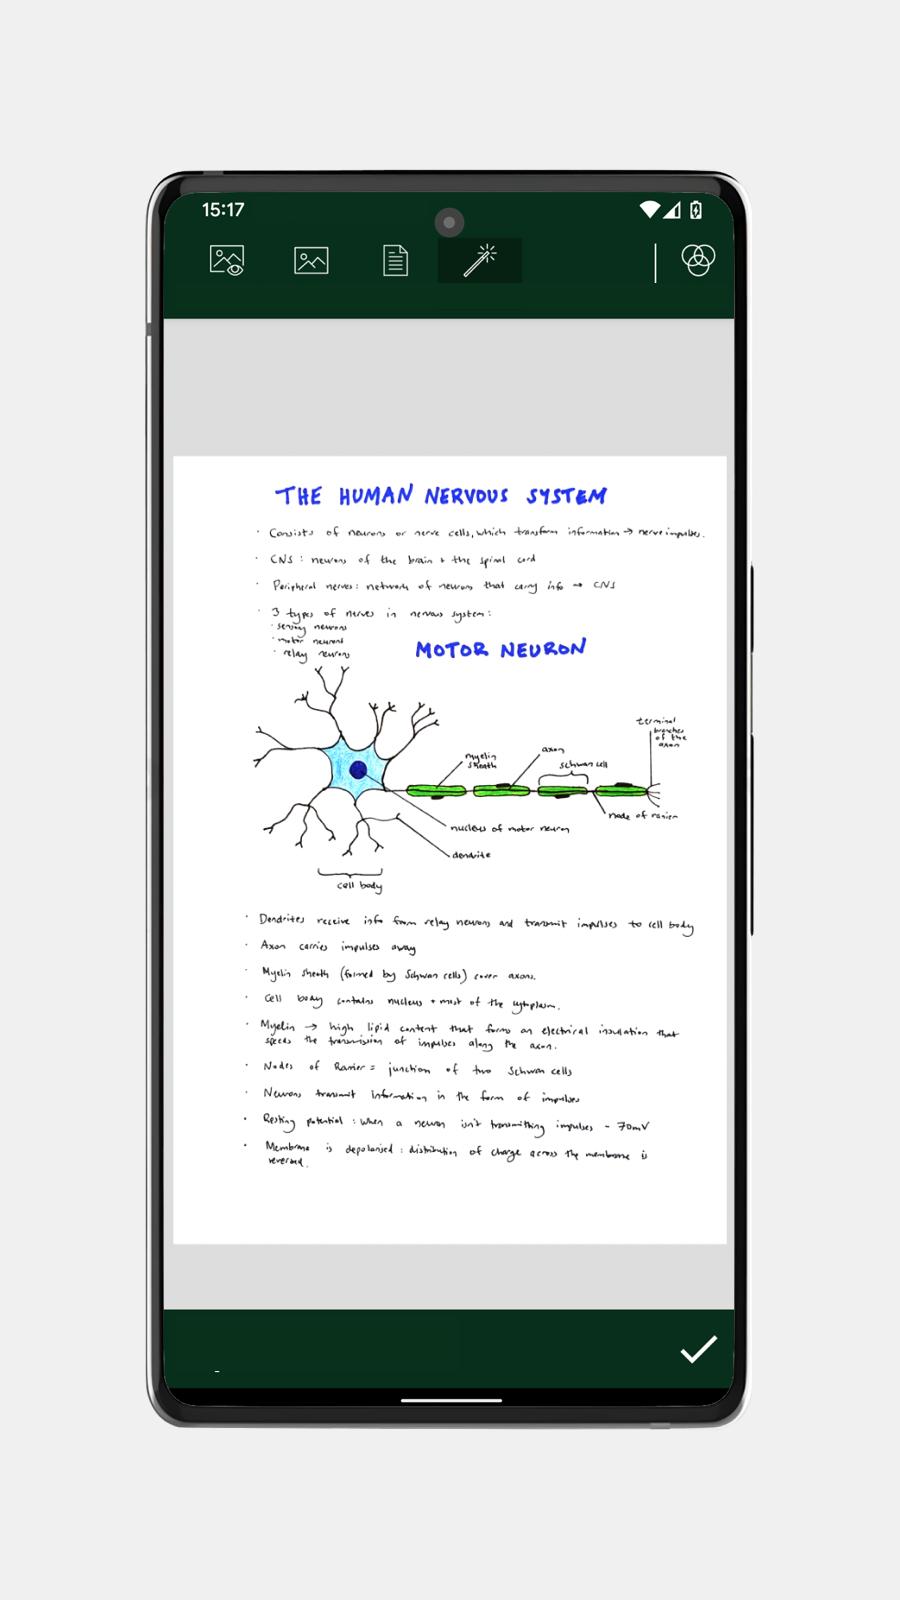 15:17
THE HUMAN NERVOUS SYSTEM
· Consists of neurons or nerve cells, which transform information → nerve impulses.
· CNS : neurons of the brain + the spinal cord
· Peripheral nerves : network of neurons that carry info → CNS
· 3 types of nerves in nervous system :
· sensory neurons
· motor neurons
· relay neurons
MOTOR NEURON
terminal
branches
of the
axon
myelin
sheath
axon
schwan cell
node of ranier
nucleus of motor neuron
dendrite
cell body
· Dendrites receive info from relay neurons and transmit impulses to cell body
· Axon carries impulses away
· Myelin sheath (formed by Schwan cells) cover axons.
· Cell body contains nucleus + most of the cytoplasm.
· Myelin → high lipid content that forms an electrical insulation that
speeds the transmission of impulses along the axon.
· Nodes of Ranier = junction of two Schwan cells
· Neurons transmit information in the form of impulses
· Resting potential : when a neuron isn't transmitting impulses - 70mV
· Membrane is depolarised : distribution of charge across the membrane is
reversed.